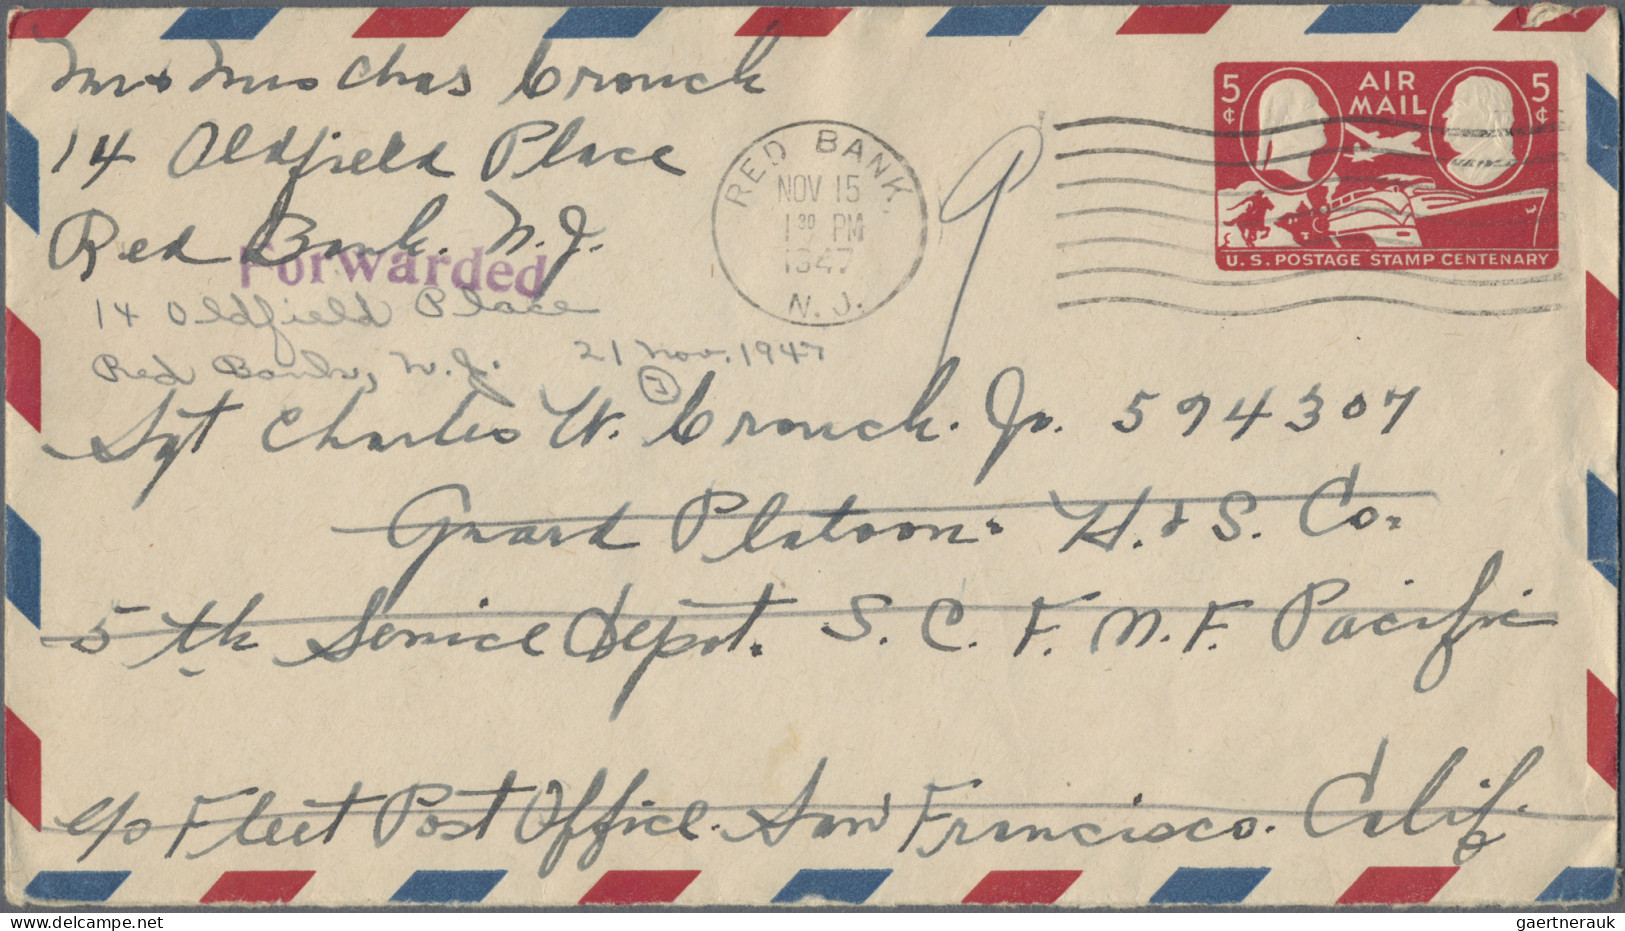 Mr & Mrs Chas Crouch
14 Oldfield Place
Red Bank. N.J.
Forwarded
14 Oldfield Place
Red Bank, N.J. 21 Nov. 1947
RED BANK,
NOV 15
1 30 PM
1947
N. J.
5¢ AIR MAIL 5¢
U.S. POSTAGE STAMP CENTENARY
Sgt Charles W. Crouch. Jr. 594307
Guard Platoon. H. & S. Co.
5th Service Depot. S. C. F. M. F. Pacific
c/o Fleet Post Office. San Francisco. Calif.
gaertnerauk